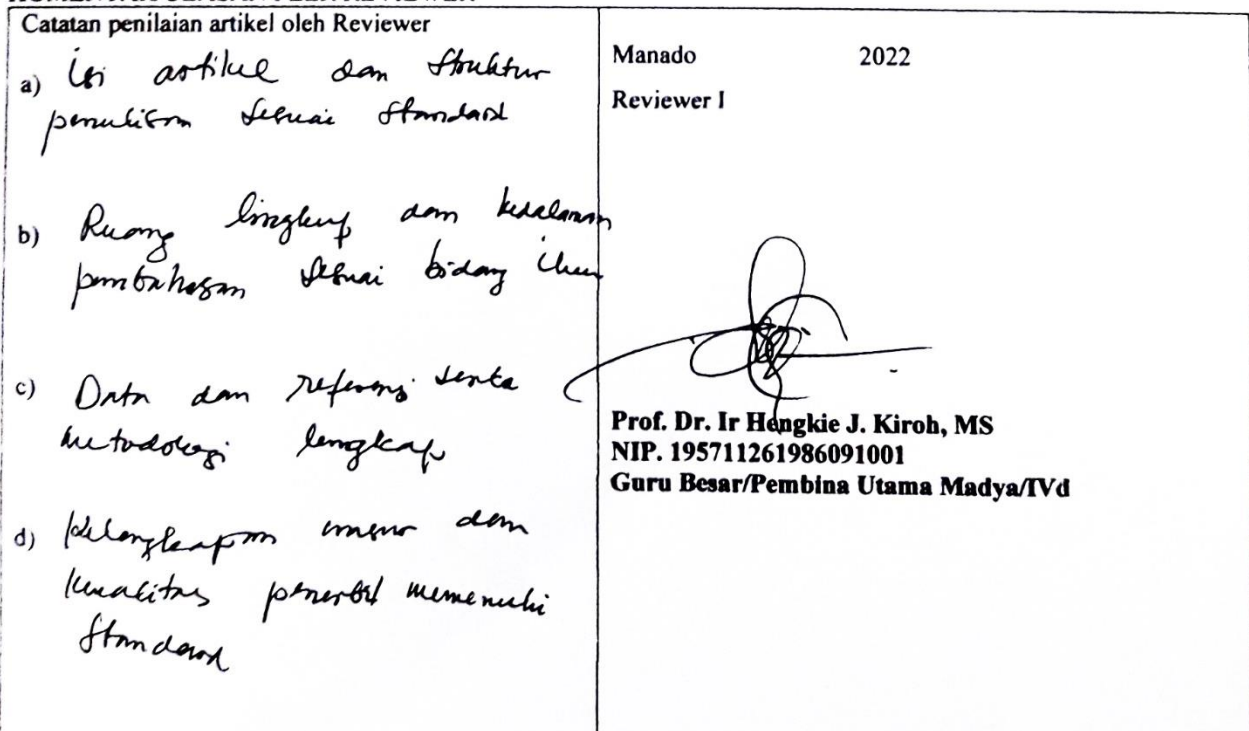 Catatan penilaian artikel oleh Reviewer
a) Isi artikel dan Struktur
penulisan sesuai Standard
b) Ruang lingkup dan kedalaman
pembahasan sesuai bidang ilmu
c) Data dan referensi serta
metodologi lengkap
d) Kelengkapan unsur dan
kualitas penerbit memenuhi
Standard
Manado 2022
Reviewer I
Prof. Dr. Ir Hengkie J. Kiroh, MS
NIP. 195711261986091001
Guru Besar/Pembina Utama Madya/IVd